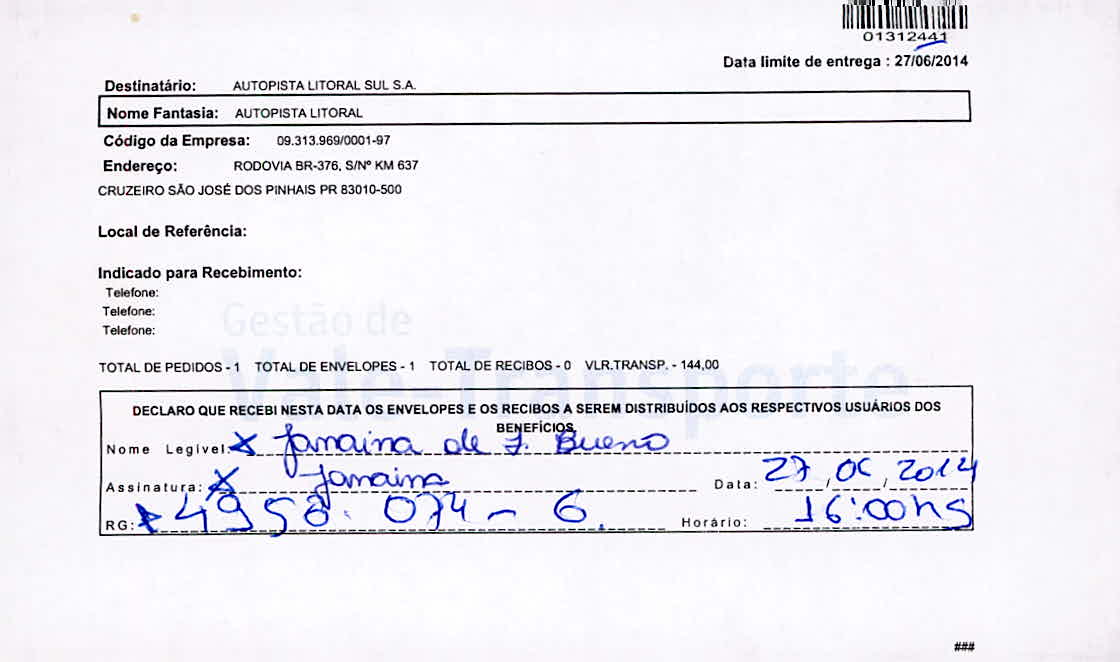 01312441
Data limite de entrega : 27/06/2014
Destinatário: AUTOPISTA LITORAL SUL S.A.
Nome Fantasia: AUTOPISTA LITORAL
Código da Empresa: 09.313.969/0001-97
Endereço: RODOVIA BR-376, S/Nº KM 637
CRUZEIRO SÃO JOSÉ DOS PINHAIS PR 83010-500
Local de Referência:
Indicado para Recebimento:
Telefone:
Telefone:
Telefone:
Gestão de
Vale-Transporte
TOTAL DE PEDIDOS - 1 TOTAL DE ENVELOPES - 1 TOTAL DE RECIBOS - 0 VLR.TRANSP. - 144,00
DECLARO QUE RECEBI NESTA DATA OS ENVELOPES E OS RECIBOS A SEREM DISTRIBUÍDOS AOS RESPECTIVOS USUÁRIOS DOS
BENEFÍCIOS.
Nome Legível: X Janaina de J. Bueno
Assinatura: X Janaina Data: 27/06/2014
RG: 4958.074-6. Horário: 16:00hs
###